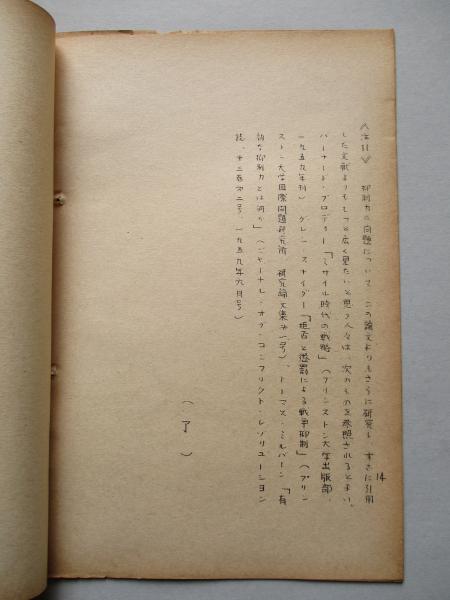 《注11》 抑制力の問題について、この論文よりもさらに研究し、すでに引用
した文献よりももっと広く見たいと思う人々は、次のものを参照されるとよい。
バーナード・ブロディー「ミサイル時代の戦略」(プリンストン大学出版部、
一九五九年刊)、グレン・スナイダー「拒否と懲罰による戦争抑制」(プリン
ストン大学国際問題研究所、研究論文集才一号)、トマス・ミルバーン「有
効な抑制力とは何か」(ジャーナル・オブ・コンフリクト・レゾリューション
誌、才三巻才二号、一九五九年六月号)
(了)
14